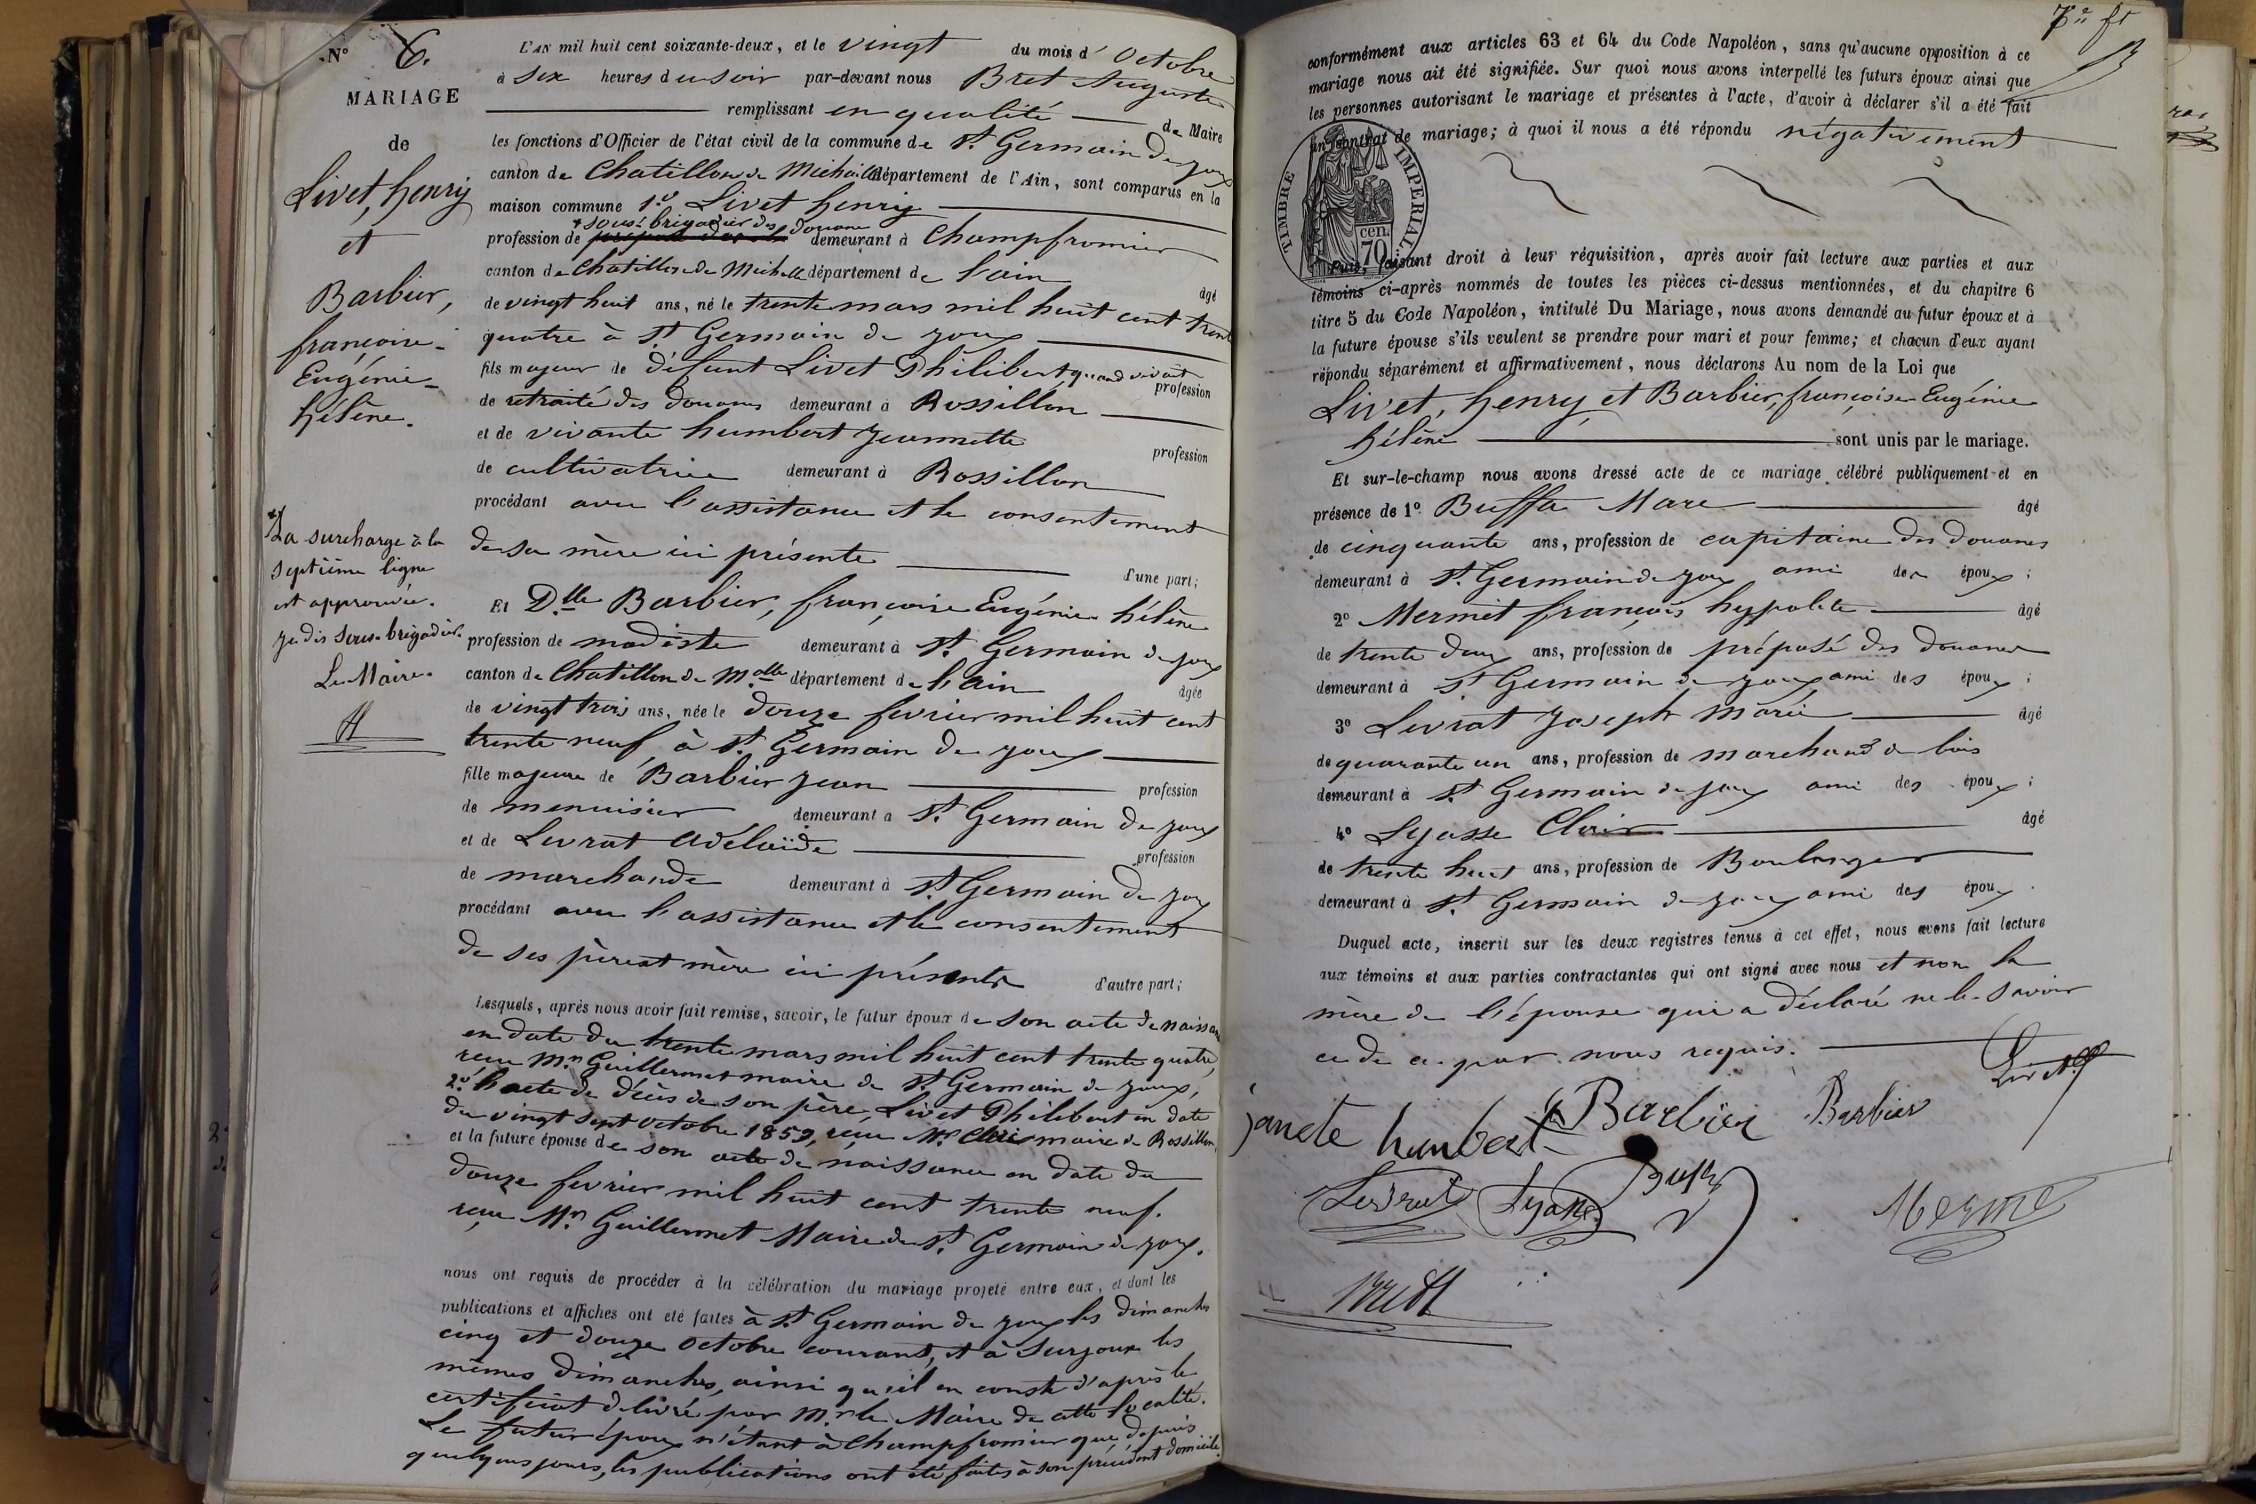 N° 6.
MARIAGE
de
Livet, henry
et
Barbier,
françoise-
Eugénie-
hélène.
*/ La surcharge à la
septième ligne
est approuvée.
je dis sous-brigadier.
Le Maire.
L'AN mil huit cent soixante-deux, et le vingt du mois d' Octobre
à six heures du soir par-devant nous Bret Auguste
remplissant en qualité de Maire
les fonctions d'Officier de l'état civil de la commune de St. Germain de joux
canton de Chatillon de Michaille département de l'Ain, sont comparus en la
maison commune 1° Livet henry
* sous-brigadier des douanes
profession de demeurant à Champfromier
canton de Chatillon de Michlle département de l'ain âgé
de vingt huit ans, né le trente mars mil huit cent trente
quatre à St Germain de joux
fils majeur de défunt Livet Philibert quand vivait profession
de retraité des douanes demeurant à Rossillon
et de vivante humbert jeannette profession
de cultivatrice demeurant à Rossillon
procédant avec l'assistance et le consentement
de sa mère ici présente d'une part;
Et Dlle Barbier, françoise Eugénie hélène
profession de modiste demeurant à St. Germain de joux
canton de Chatillon de Mlle département de l'ain âgée
de vingt trois ans, née le douze fevrier mil huit cent
trente neuf, à St. Germain de joux
fille majeure de Barbier jean profession
de menuisier demeurant à St. Germain de joux
et de Levrat Adélaïde profession
de marchande demeurant à St. Germain de joux
procédant avec l'assistance et le consentement
de ses père et mère ici présents d'autre part;
Lesquels, après nous avoir fait remise, savoir, le futur époux de son acte de naissance
en date du trente mars mil huit cent trente quatre,
reçu Mr. Guillermet maire de St. Germain de joux,
2° l'acte de décès de son père, Livet Philibert en date
du vingt sept octobre 1859, reçu Mr. maire de Rossillon.
et la future épouse de son acte de naissance en date du
douze fevrier mil huit cent trente neuf.
reçu Mr. Guillermet Maire de St. Germain de joux.
nous ont requis de procéder à la célébration du mariage projeté entre eux, et dont les
publications et affiches ont été faites à St Germain de joux les dimanches
cinq et douze octobre courant, et à Surjoux les
mêmes dimanches, ainsi qu'il en conste d'après le
certificat délivré par Mr le Maire de cette localité.
Le futur époux n'étant à Champfromier que depuis
quelques jours, les publications ont été faites à son précédent domicile.
conformément aux articles 63 et 64 du Code Napoléon, sans qu'aucune opposition à ce
mariage nous ait été signifiée. Sur quoi nous avons interpellé les futurs époux ainsi que
les personnes autorisant le mariage et présentes à l'acte, d'avoir à déclarer s'il a été fait
un contrat de mariage; à quoi il nous a été répondu négativement
TIMBRE IMPERIAL
70 cen.
Puis, faisant droit à leur réquisition, après avoir fait lecture aux parties et aux
témoins ci-après nommés de toutes les pièces ci-dessus mentionnées, et du chapitre 6
titre 5 du Code Napoléon, intitulé Du Mariage, nous avons demandé au futur époux et à
la future épouse s'ils veulent se prendre pour mari et pour femme; et chacun d'eux ayant
répondu séparément et affirmativement, nous déclarons Au nom de la Loi que
Livet, henry, et Barbier, françoise Eugénie
hélène sont unis par le mariage.
Et sur-le-champ nous avons dressé acte de ce mariage célébré publiquement et en
présence de 1° Buffa Marc âgé
de cinquante ans, profession de capitaine des douanes
demeurant à St. Germain de joux ami des époux;
2° Mermet françois hyppolite âgé
de trente deux ans, profession de préposé des douanes
demeurant à St Germain de joux ami des époux;
3° Levrat Joseph Marie âgé
de quarante un ans, profession de marchand de bois
demeurant à St Germain de joux ami des époux;
4° Lyasse Clair âgé
de trente huit ans, profession de Boulanger
demeurant à St Germain de joux ami des époux.
Duquel acte, inscrit sur les deux registres tenus à cet effet, nous avons fait lecture
aux témoins et aux parties contractantes qui ont signé avec nous et non la
mère de l'épouse qui a déclaré ne le savoir
ce de ce par nous requis.
Livet
janete humbert Barbier Barbier
Levrat Lyasse Buffa Mermet
Bret